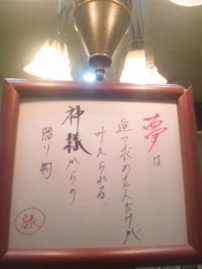 夢は
追い求めた人だけが
叶えられる
神様からの
贈り物